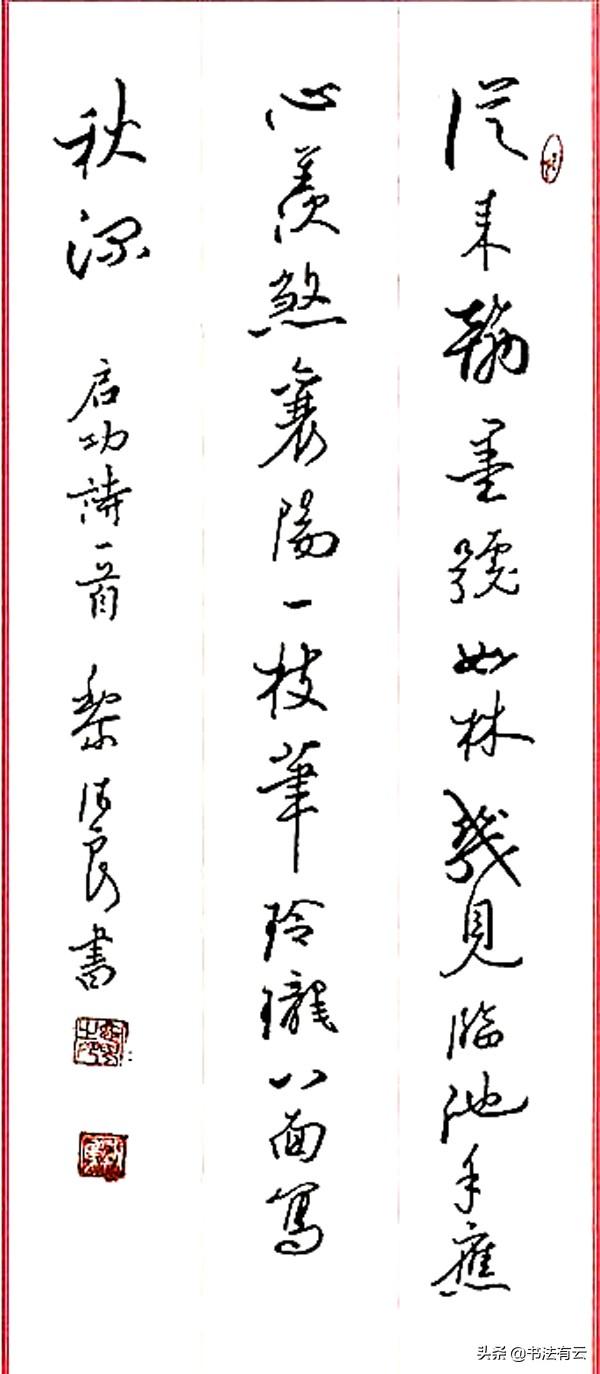 從来翰墨號如林幾見臨池手應
心羨煞襄陽一枝筆玲瓏八面寫
秋深
启功詩一首 黎德良書
头条 @书法有云